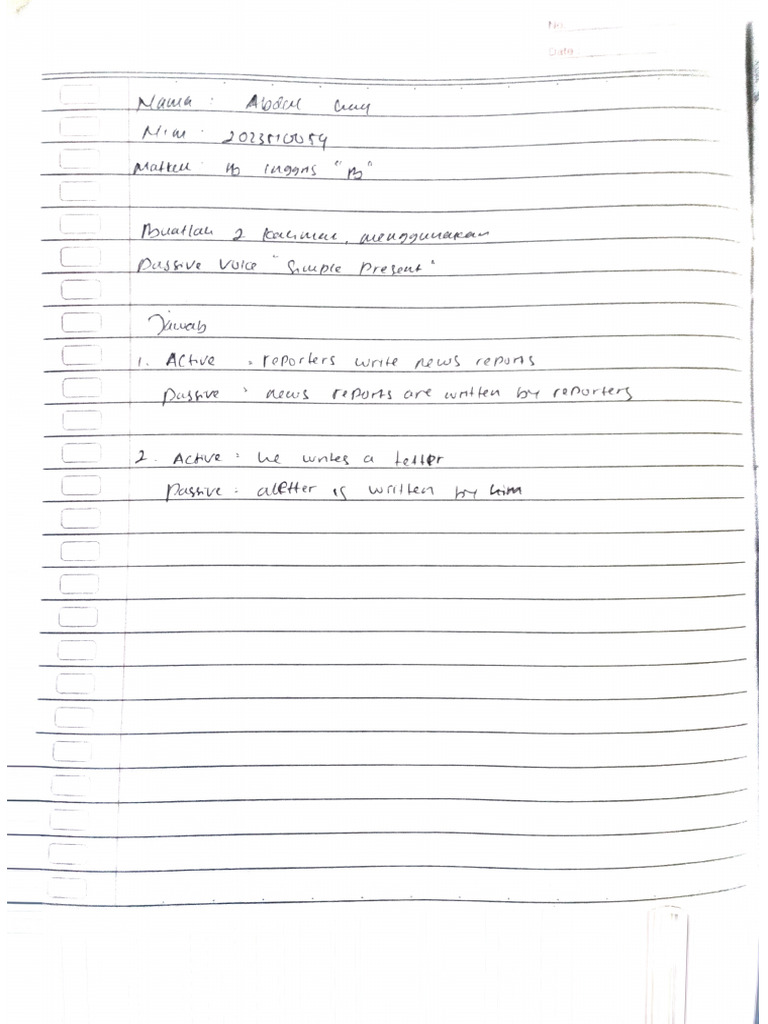 No
Date
Nama : Abdul
Nim :
Matkul : B Inggris "B"
Buatlah 2 kalimat, menggunakan
Passive Voice "Simple Present"
Jawab
1. Active : reporters write news reports
Passive : news reports are written by reporters
2. Active : he writes a letter
Passive : a letter is written by him